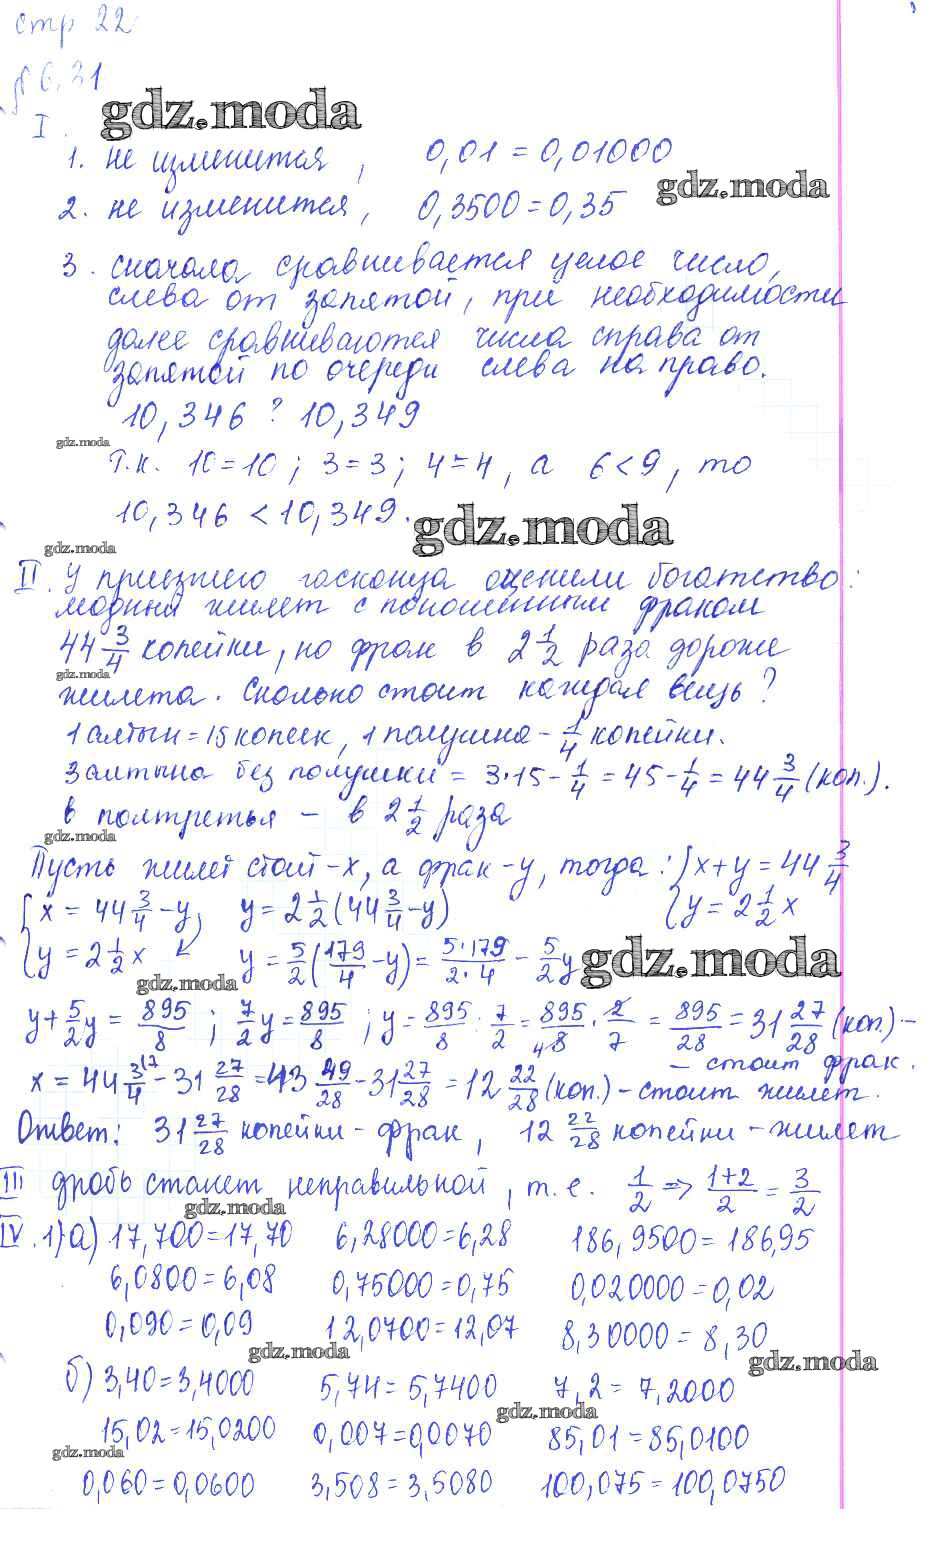 стр 22
№ 6.31
gdz.moda
I.
1. не изменится, 0,01 = 0,01000
gdz.moda
2. не изменится, 0,3500 = 0,35
3. сначала сравнивается целое число,
слева от запятой, при необходимости
далее сравниваются числа справа от
запятой по очереди слева на право.
10,346 ? 10,349
gdz.moda
Т.к. 10 = 10; 3 = 3; 4 = 4, а 6 < 9, то
10,346 < 10,349.
gdz.moda
gdz.moda
II. У приезжего госконца оценили богатство:
модный жилет с поношенным фраком
44 3/4 копейки, но фрак в 2 1/2 раза дороже
gdz.moda
жилета. Сколько стоит каждая вещь?
1 алтын = 15 копеек, 1 полушка - 1/4 копейки.
3 алтына без полушки = 3·15 - 1/4 = 45 - 1/4 = 44 3/4 (коп.).
в полтретья - в 2 1/2 раза
gdz.moda
Пусть жилет стоит - x, а фрак - y, тогда: { x + y = 44 3/4
{ x = 44 3/4 - y, y = 2 1/2 (44 3/4 - y) { y = 2 1/2 x
{ y = 2 1/2 x ↙ y = 5/2 (179/4 - y) = 5·179/2·4 - 5/2 y
gdz.moda
gdz.moda
y + 5/2 y = 895/8; 7/2 y = 895/8; y = 895/8 : 7/2 = 895/48 · 2/7 = 895/28 = 31 27/28 (коп.) -
- стоит фрак.
x = 44 3/4 17 - 31 27/28 = 43 49/28 - 31 27/28 = 12 22/28 (коп.) - стоит жилет.
Ответ: 31 27/28 копейки - фрак, 12 22/28 копейки - жилет
III дробь станет неправильной, т.е. 1/2 => 1+2/2 = 3/2
gdz.moda
IV. 1) а) 17,700 = 17,70 6,28000 = 6,28 186,9500 = 186,95
6,0800 = 6,08 0,75000 = 0,75 0,020000 = 0,02
0,090 = 0,09 12,0700 = 12,07 8,30000 = 8,30
gdz.moda
gdz.moda
б) 3,40 = 3,4000 5,74 = 5,7400 7,2 = 7,2000
gdz.moda
15,02 = 15,0200 0,007 = 0,0070 85,01 = 85,0100
gdz.moda
0,060 = 0,0600 3,508 = 3,5080 100,075 = 100,0750